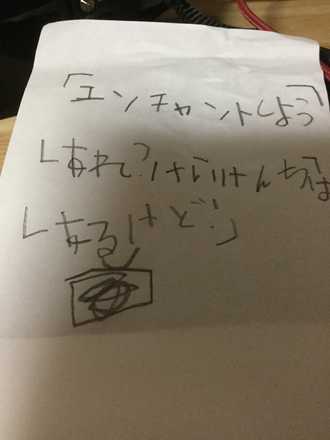 「エンチャントしよう」
「あれ?けいけんちは
「あるけど?」